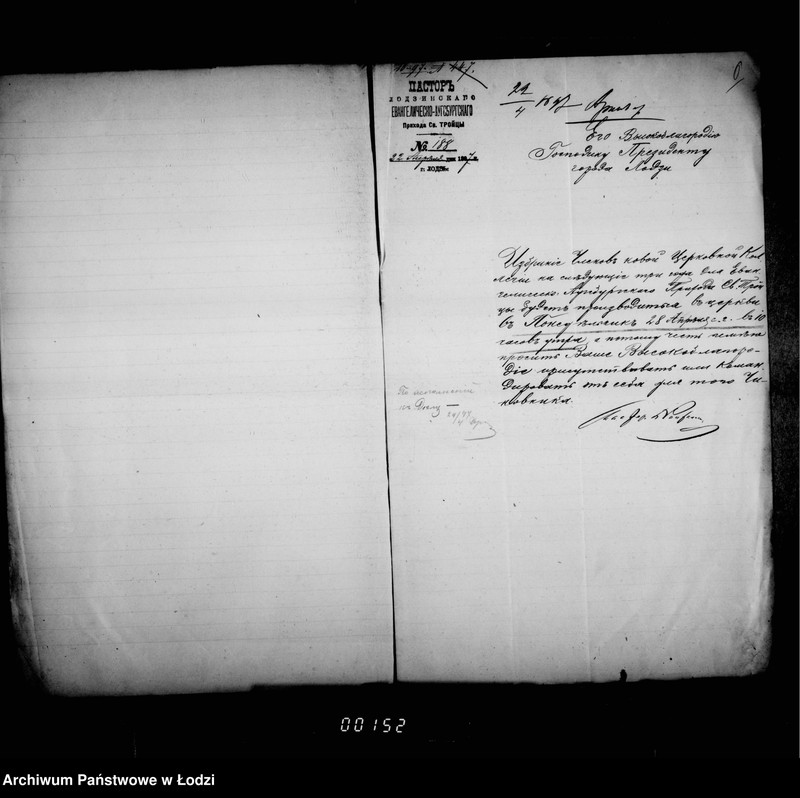 ПАСТОРЪ
ЛОДЗИНСКАГО
ЕВАНГЕЛИЧЕСКО-АУГСБУРГСКАГО
Прихода Св. ТРОЙЦЫ
№ 188
22 Апрѣля дня 1897 г.
г. ЛОДЗЬ
Его Высокоблагородію
Господину Президенту
города Лодзи
Избраніе Членовъ новой Церковной Кол
легіи на слѣдующіе три года для Еван
гелическо-Аугсбургскаго Прихода Св. Трои
цы будетъ производиться въ церкви
въ Понедѣльникъ 28 Апрѣля с. г. въ 10
часовъ утра, а потому честь имѣю
просить Ваше Высокоблагоро-
діе присутствовать или коман
дировать отъ себя для того Чи-
новника.
Пасторъ
00152
Archiwum Państwowe w Łodzi